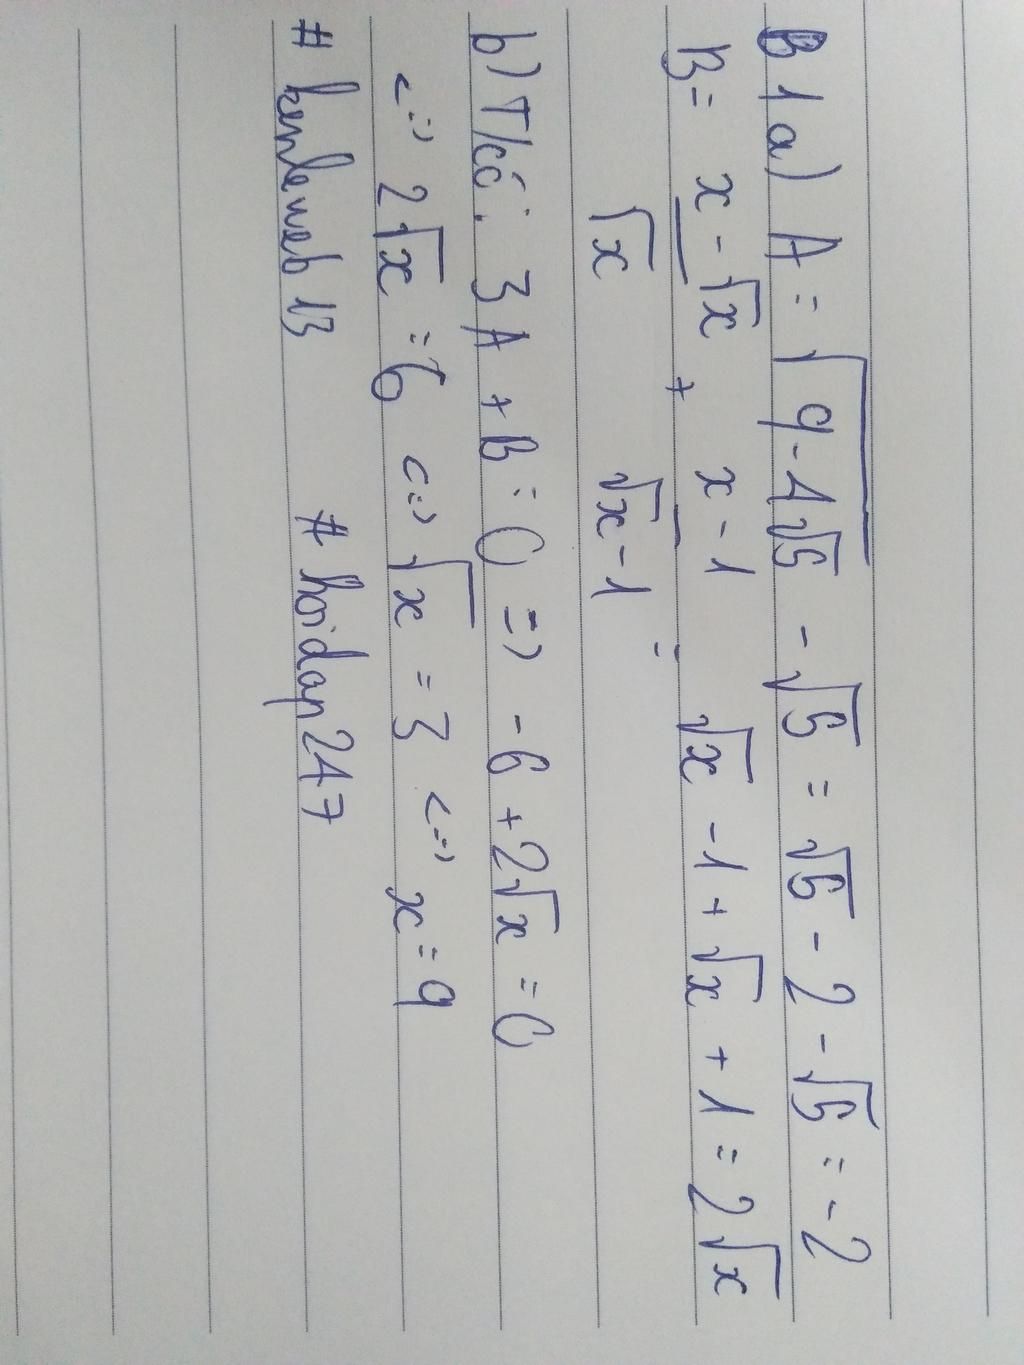 B1a) A = √(9-4√5) - √5 = √5 - 2 - √5 = -2
B = (x - √x)/√x + (x - 1)/(√x - 1) = √x - 1 + √x + 1 = 2√x
b) T/có: 3A + B = 0 => -6 + 2√x = 0
<=> 2√x = 6 <=> √x = 3 <=> x = 9
# kenleweb13 # hoidap247